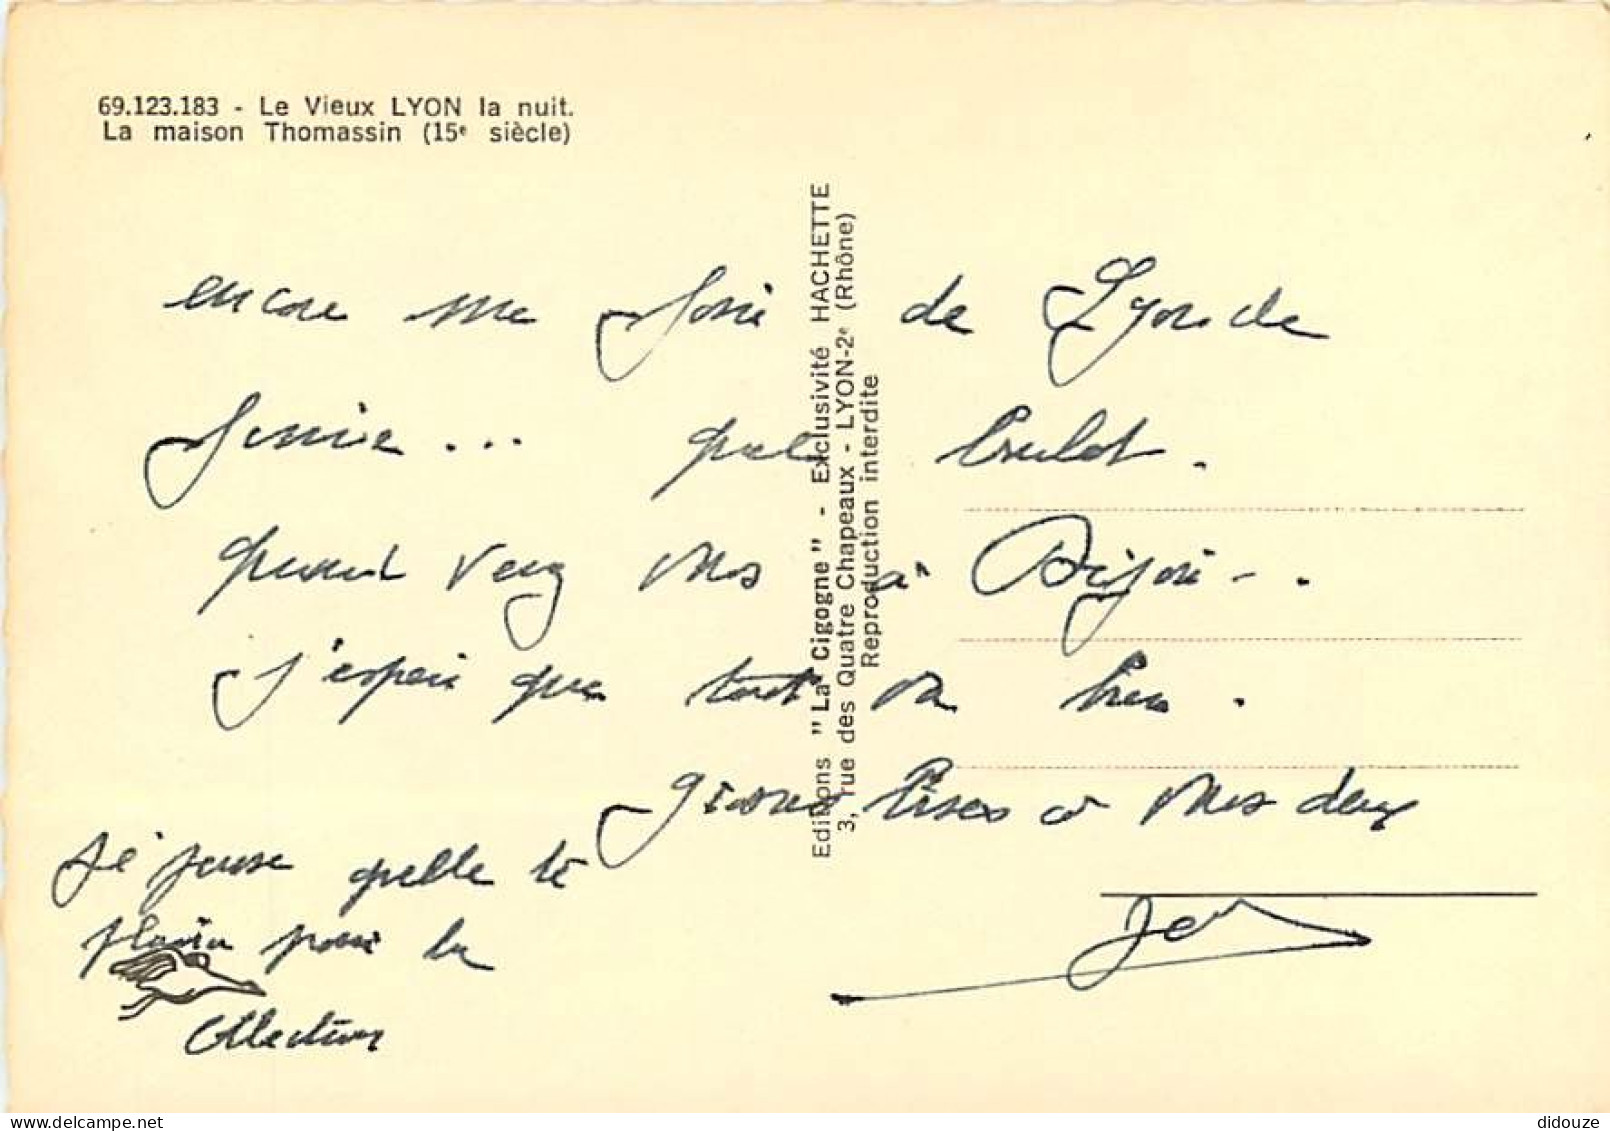 69.123.183 - Le Vieux LYON la nuit.
La maison Thomassin (15e siècle)
encore une fois de Lyon de
Jennie... quel boulot.
quand venez vous à Dijon - .
J'espère que tout va bien.
grosses bises à vous deux
Je pense qu'elle te
plaira pour la
collection
Editions "La Cigogne" - Exclusivité HACHETTE
3, rue des Quatre Chapeaux - LYON-2e (Rhône)
Reproduction interdite
didouze